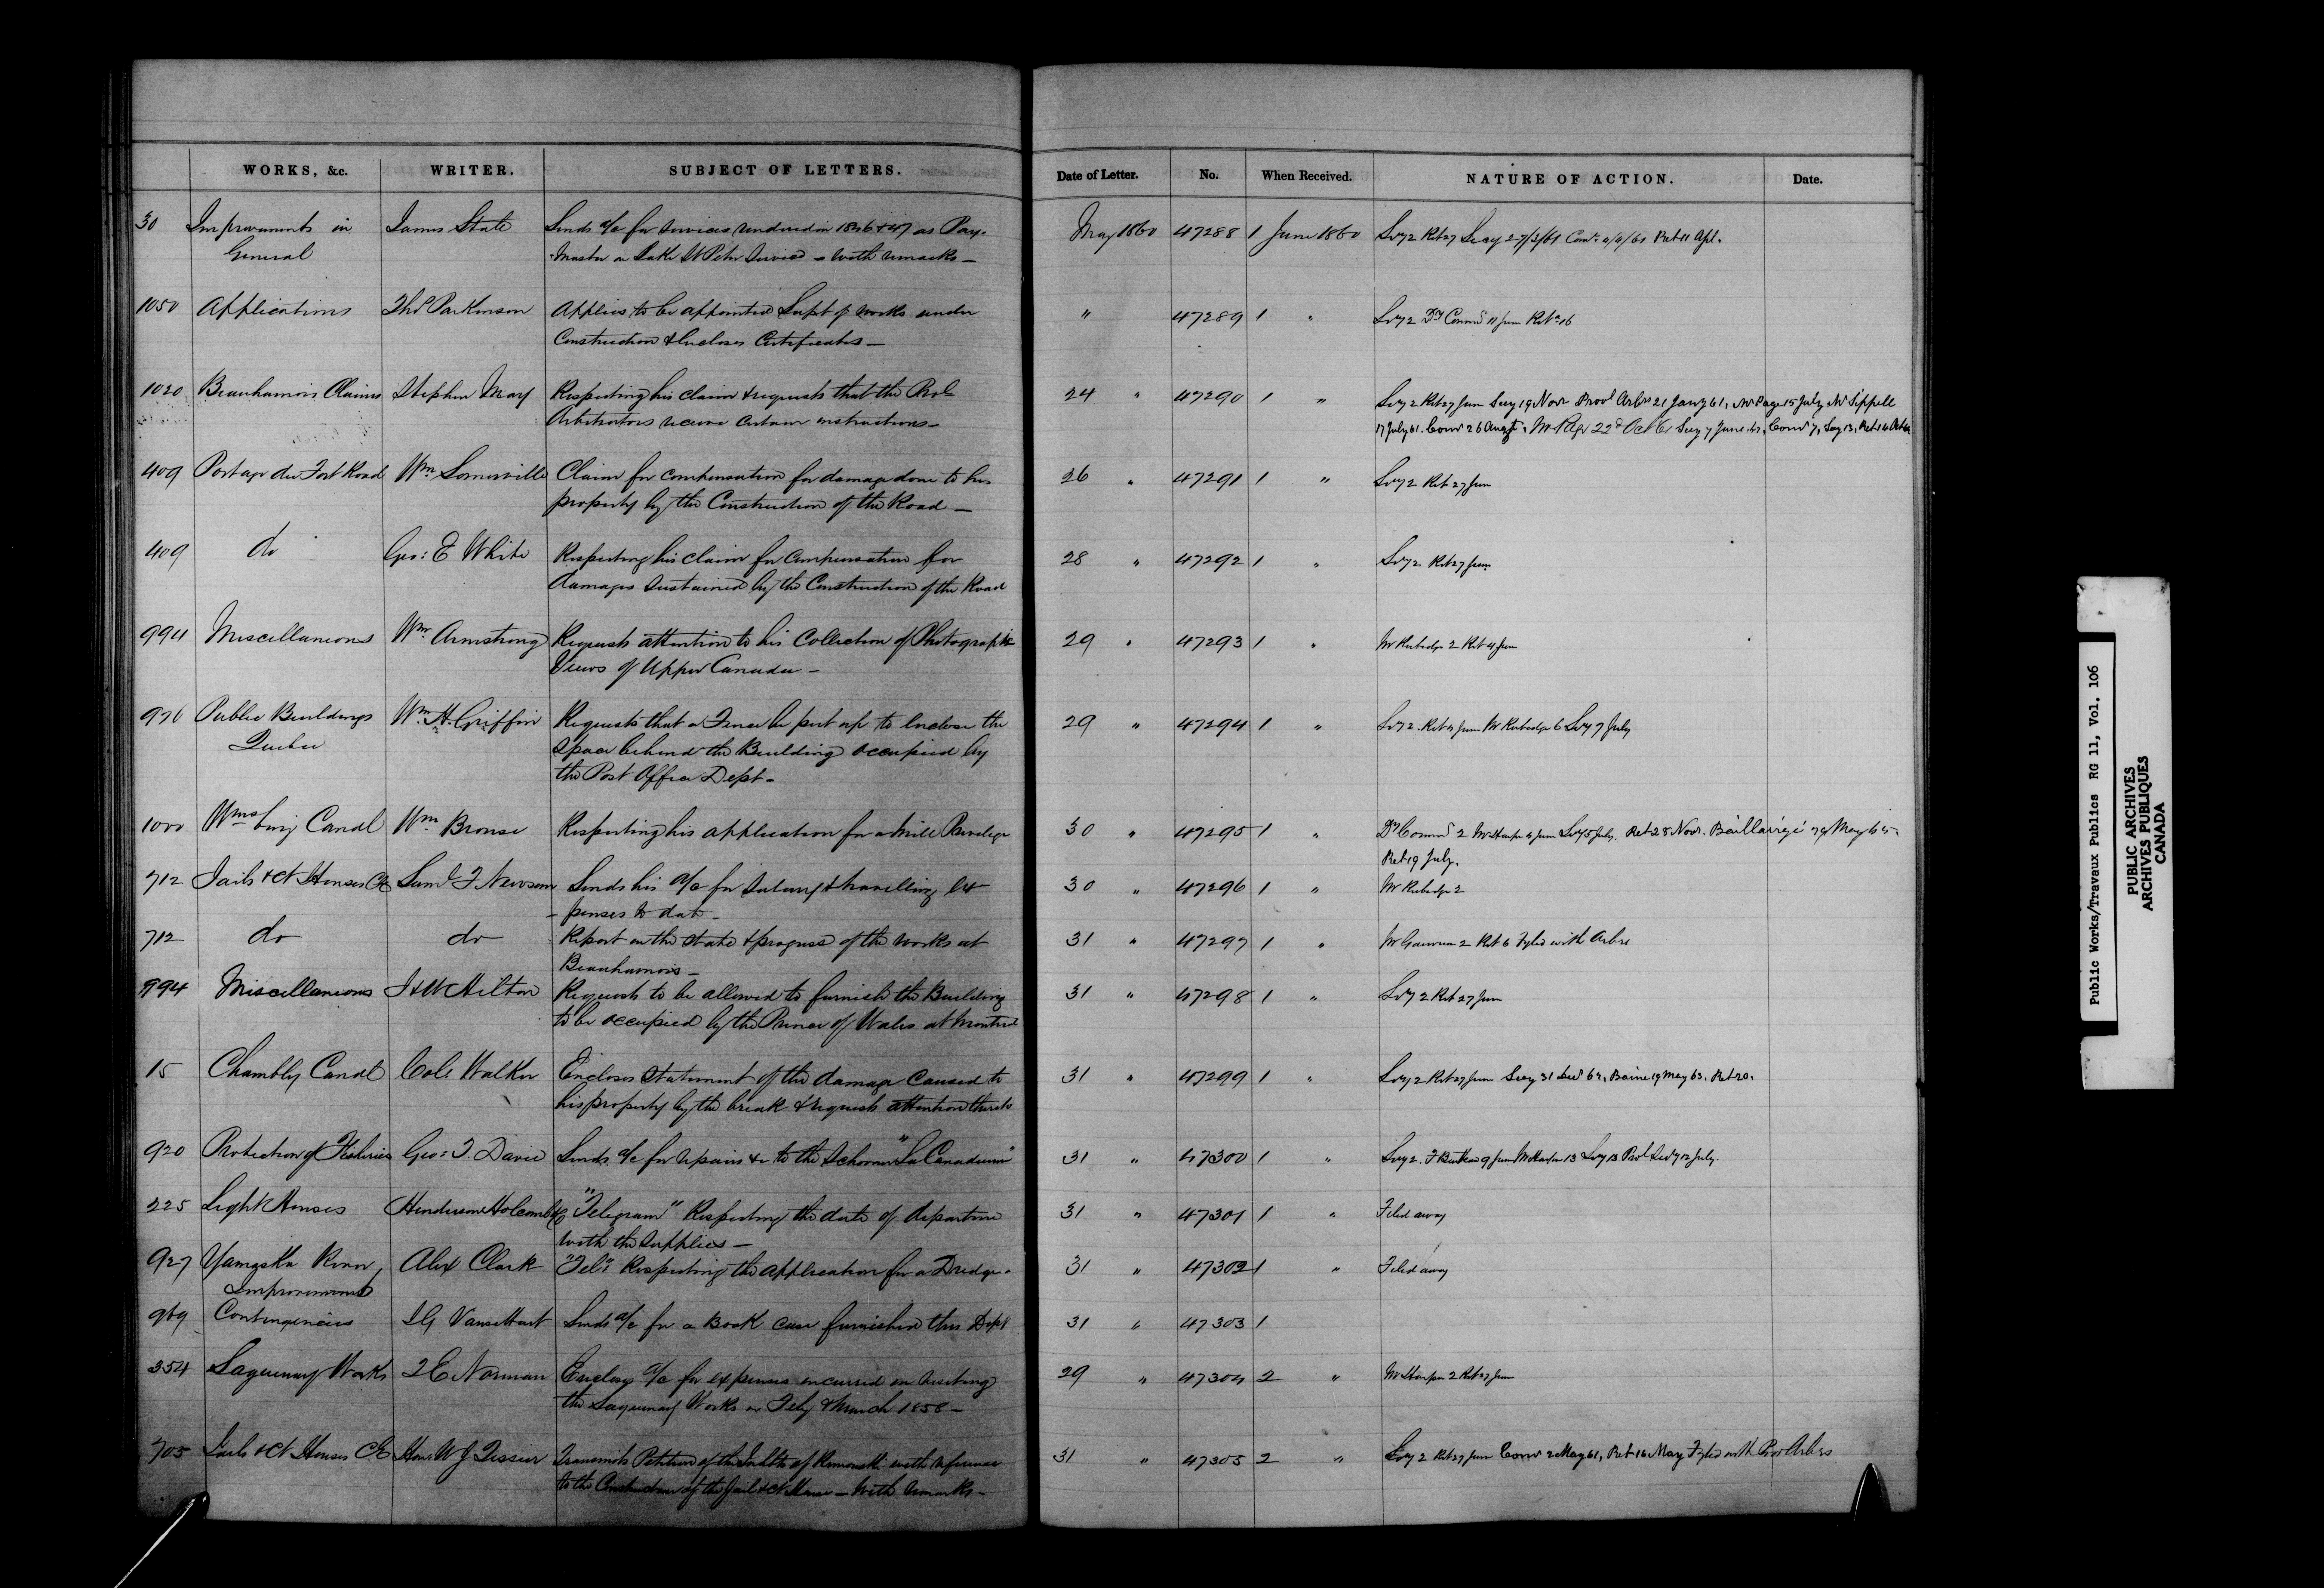 WORKS, &c. WRITER. SUBJECT OF LETTERS. Date of Letter. No. When Received. NATURE OF ACTION. Date.
30 Improvements in James State Sends a/c for services rendered in 1846 & 47 as Pay- May 1860 47288 1 June 1860 Secy 2 Ret 27 Secy 27/3/61 Comr 4/4/61 Ret 11 Apl.
General -Master on Lake St Peter Service – with remarks –
1050 Applications Thos Parkinson Applies to be appointed Supt of works under " 47289 1 " Secy 2 Dy Commr 11 June Retd 16
Construction & Encloses Certificates –
1020 Beauharnois Claims Stephen May Respecting his claim & requests that the Prol 24 " 47290 1 " Secy 2 Ret 27 June Secy 19 Novr Provl Arbrs 21 Jany 61, Mr Page 15 July Mr Sippell
Arbitrators receive certain instructions – 17 July 61. Comr 26 Augt, Mr Page 22d Oct 61 Secy 7 June 62, Comr 7, Secy 13, Ret 14
409 Portage du Fort Road Wm Somerville Claim for compensation for damage done to his 26 " 47291 1 " Secy 2 Ret 27 June
property by the Construction of the Road –
409 do Geo: E White Respecting his claim for compensation for 28 " 47292 1 " Secy 2 Ret 27 June
damages sustained by the Construction of the Road
994 Miscellaneous Wm Armstrong Requests attention to his Collection of Photographic 29 " 47293 1 " Mr Rubidge 2 Ret 4 June
Views of Upper Canada –
976 Public Buildings Wm H. Griffin Requests that a Fence be put up to enclose the 29 " 47294 1 " Secy 2. Ret 4 June Mr Rubidge 6 Secy 7 July
Quebec space behind the Building occupied by
the Post Office Dept –
1000 Wmsburg Canal Wm Brouse Respecting his application for a Mill Privilege 30 " 47295 1 " Dy Commr 2 Mr Harper 4 June Secy 5 July. Ret 28 Novr. Baillairgé 29 May 65,
Ret 19 July.
712 Jails & Ct Houses CE Saml F Newsom Sends his a/c for Salary & travelling Ex 30 " 47296 1 " Mr Rubidge 2
-penses to date –
712 do do Report on the state & progress of the works at 31 " 47297 1 " Mr Gauvreau 2 Ret 6 Fyled with Arbrs
Beauharnois –
994 Miscellaneous J & W Hilton Requests to be allowed to furnish the Building 31 " 47298 1 " Secy 2 Ret 27 June
to be occupied by the Prince of Wales at Montreal
15 Chambly Canal Cole Walker Encloses statement of the damage caused to 31 " 47299 1 " Secy 2 Ret 27 June Secy 31 62, Baine 19 May 63, Ret 20.
his property by the break & requests attention thereto
920 Protection of Fisheries Geo: T. Davie Sends a/c for repairs &c to the Schooner "La Canadienne" 31 " 47300 1 " Secy 2. 9 June Mr Harper 13 Secy 13 12 July.
225 Light Houses Henderson Holcomb & Co "Telegram" Respecting the date of departure 31 " 47301 1 " Filed away
with the supplies –
927 Yamaska River Alex Clark "Tel:" Respecting the application for a Dredge. 31 " 47302 1 " Filed away
Improvement
969 Contingencies J G Vansittart Sends a/c for a Book case furnished this Dept 31 " 47303 1
354 Saguenay Works T E Norman Enclosg a/c for expenses incurred in visiting 29 " 47304 2 " Mr Harper 2 Ret 27 June
the Saguenay Works in Feby & March 1858 –
705 Jails & Ct Houses CE Hon W J Tessier Transmits Petition of the Inhbts of Rimouski with reference 31 " 47305 2 " Secy 2 Ret 27 June Comr 2 May 61, Ret 16 May Fyled with Prov Arbrs
to the Construction of the Jail & Ct House – with remarks –
Public Works/Travaux Publics RG 11, Vol. 106
PUBLIC ARCHIVES
ARCHIVES PUBLIQUES
CANADA